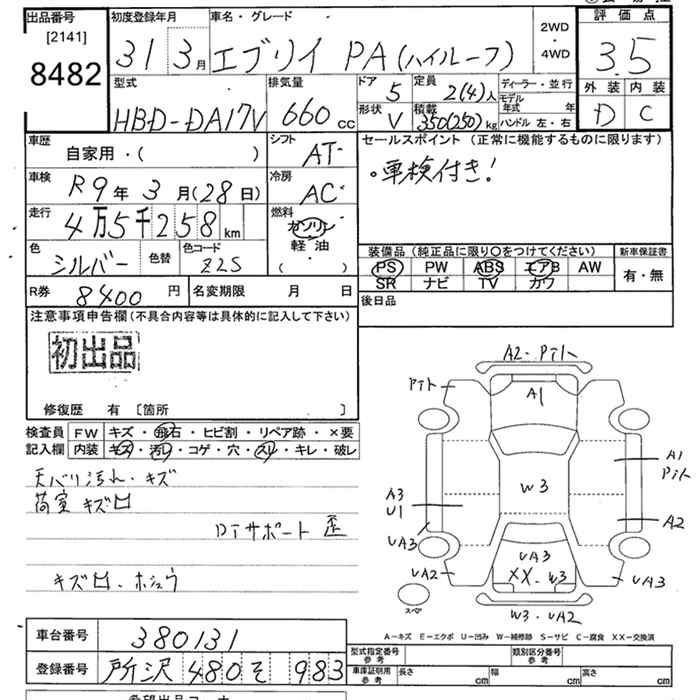 出品番号
[2141]
8482
初度登録年月
31 3月
車名・グレード
エブリイ PA(ハイルーフ)
2WD
・
4WD
評価点
3.5
外装 内装
D C
型式
HBD-DA17V
排気量
660cc
ドア 5
形状 V
定員 2(4)人
積載 350(250)kg
ディーラー・並行
モデル年式 年
ハンドル 左・右
車歴
自家用・( )
シフト AT
車検 R9年3月(28日)
冷房 AC
走行 4万5千258km
燃料
ガソリン
軽・油
( )
色 シルバー 色替
色コード Z2S
R券 8400円
名変期限 月 日
セールスポイント(正常に機能するものに限ります)
・車検付き!
装備品(純正品に限り〇をつけてください)
PS PW ABS エアB AW
SR ナビ TV カワ
新車保証書
有・無
後日品
注意事項申告欄(不具合内容等は具体的に記入して下さい)
初出品
修復歴 有 [箇所 ]
検査員記入欄
FW キズ・飛石・ヒビ割・リペア跡・×要
内装 キズ・汚レ・コゲ・穴・スレ・キレ・破レ
天バリ汚れ・キズ
荷室 キズ凹
Dｱサポート 歪
キズ凹・ホシュウ
A2・Pﾅﾄ
Pﾅﾄ
A1
A1
Pﾅﾄ
W3
A3
U1
A2
UA3
UA2
UA3
XX・W3
UA3
スペア
W3・UA2
A-キズ E-エクボ U-凹み W-補修跡 S-サビ C-腐食 XX-交換済
車台番号 380131
登録番号 所沢 480 そ 983
型式指定番号
参考
類別区分番号
参考
車庫証明用
参考
長さ cm 幅 cm 高さ cm